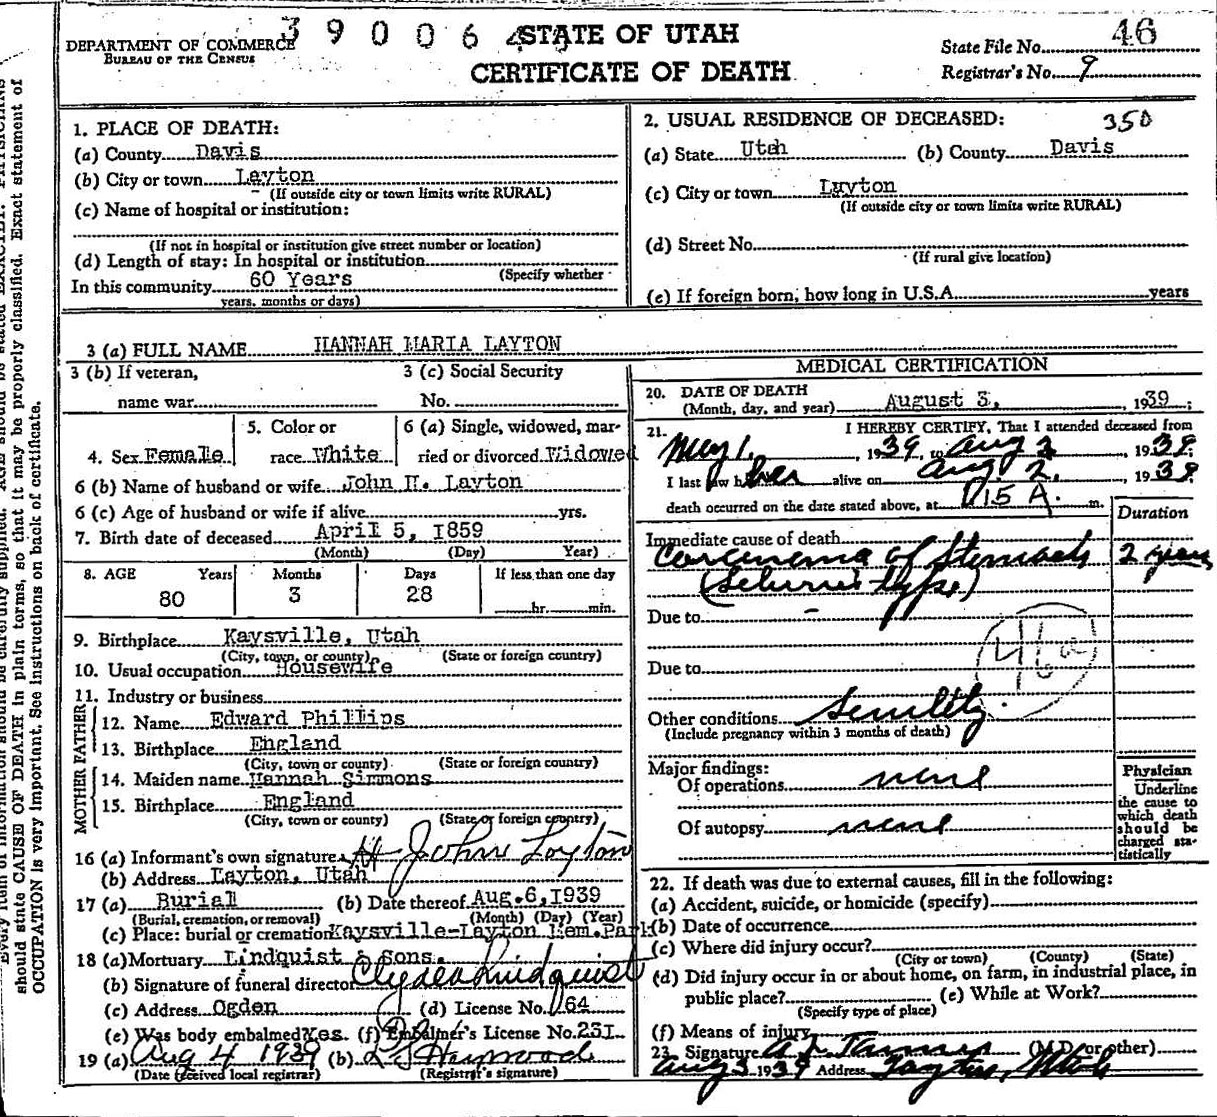 39006
DEPARTMENT OF COMMERCE
BUREAU OF THE CENSUS
STATE OF UTAH
CERTIFICATE OF DEATH
State File No. 46
Registrar's No. 9
1. PLACE OF DEATH:
(a) County Davis
(b) City or town Layton
(If outside city or town limits write RURAL)
(c) Name of hospital or institution:
(If not in hospital or institution give street number or location)
(d) Length of stay: In hospital or institution
(Specify whether
In this community 60 Years
years, months or days)
2. USUAL RESIDENCE OF DECEASED: 350
(a) State Utah (b) County Davis
(c) City or town Layton
(If outside city or town limits write RURAL)
(d) Street No.
(If rural give location)
(e) If foreign born, how long in U.S.A. years
3 (a) FULL NAME HANNAH MARIA LAYTON
3 (b) If veteran,
name war
3 (c) Social Security
No.
4. Sex Female
5. Color or
race White
6 (a) Single, widowed, mar-
ried or divorced Widowed
6 (b) Name of husband or wife John H. Layton
6 (c) Age of husband or wife if alive yrs.
7. Birth date of deceased April 5, 1859
(Month) (Day) Year)
8. AGE Years Months Days If less than one day
80 3 28 hr. min.
9. Birthplace Kaysville, Utah
(City, town, or county) (State or foreign country)
10. Usual occupation Housewife
11. Industry or business
FATHER
12. Name Edward Phillips
13. Birthplace England
(City, town or county) (State or foreign country)
MOTHER
14. Maiden name Hannah Simmons
15. Birthplace England
(City, town or county) (State or foreign country)
16 (a) Informant's own signature H John Layton
(b) Address Layton, Utah
17 (a) Burial (b) Date thereof Aug. 6, 1939
(Burial, cremation, or removal) (Month) (Day) (Year)
(c) Place: burial or cremation Kaysville-Layton Mem. Park
18 (a) Mortuary Lindquist & Sons.
(b) Signature of funeral director Clyde Lindquist
(c) Address Ogden (d) License No. 164
(e) Was body embalmed Yes. (f) Embalmer's License No. 231
19 (a) Aug 4 1939 (b) Heywood
(Date received local registrar) (Registrar's signature)
MEDICAL CERTIFICATION
20. DATE OF DEATH
(Month, day, and year) August 3, 1939;
21. I HEREBY CERTIFY, That I attended deceased from
May 1, 1939, to Aug 2, 1939;
I last saw her alive on Aug 2, 1939
death occurred on the date stated above, at 15 A. m.
Duration
Immediate cause of death
Carcinoma of Stomach 2 years
type)
Due to
Due to
46a
Other conditions Senility.
(Include pregnancy within 3 months of death)
Major findings:
Of operations none
Of autopsy none
Physician
Underline
the cause to
which death
should be
charged sta-
tistically
22. If death was due to external causes, fill in the following:
(a) Accident, suicide, or homicide (specify)
(b) Date of occurrence
(c) Where did injury occur?
(City or town) (County) (State)
(d) Did injury occur in or about home, on farm, in industrial place, in
public place? (e) While at Work?
(Specify type of place)
(f) Means of injury
23. Signature Tanner (M.D. or other)
Aug 3 1939 Address Layton, Utah
should state CAUSE OF DEATH in plain terms, so that it may be properly classified. Exact statement of
OCCUPATION is very important. See instructions on back of certificate.